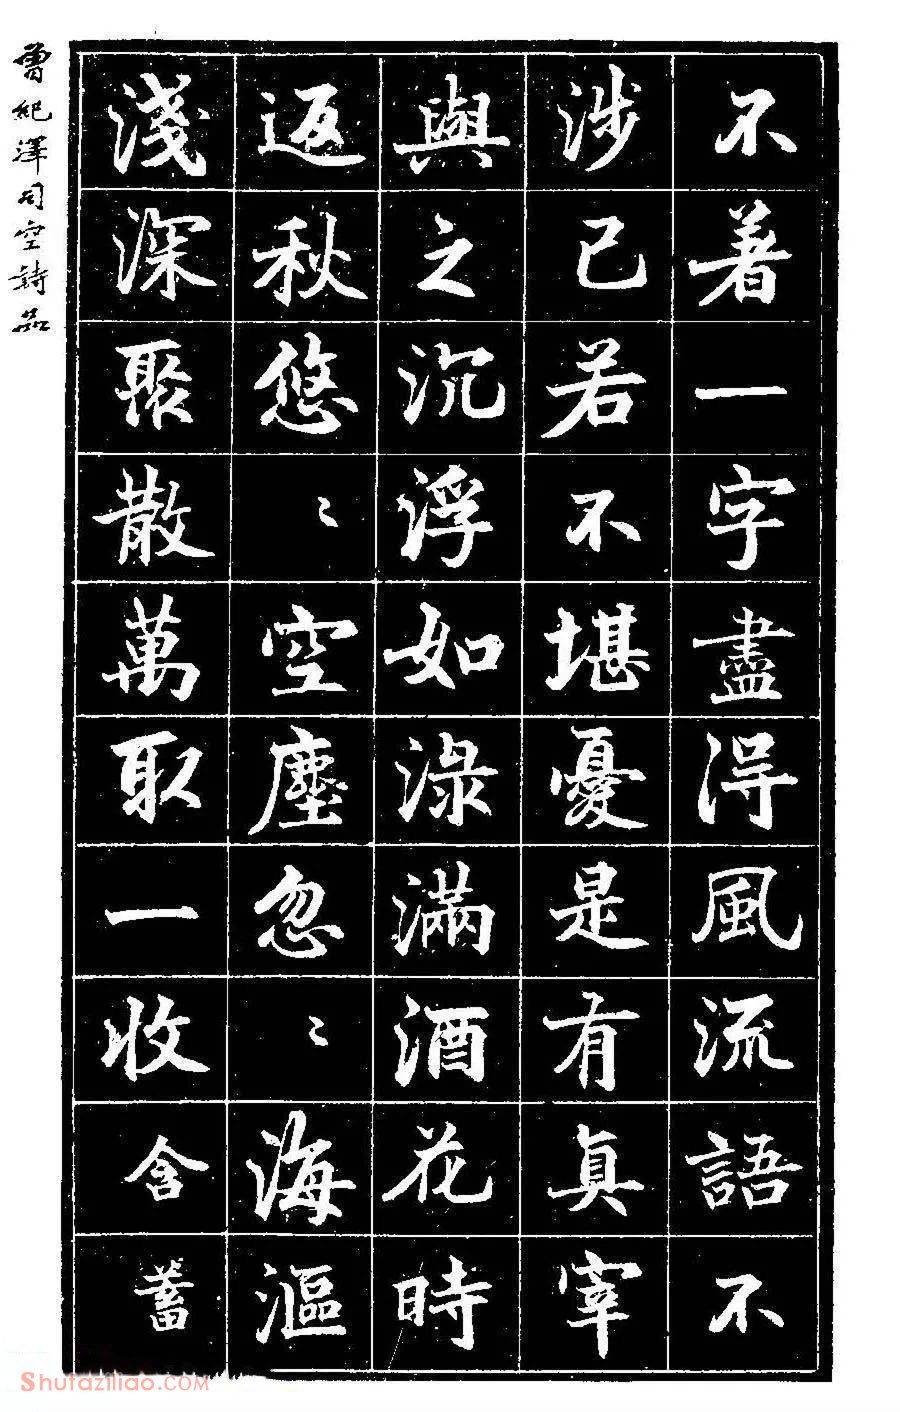 不著一字盡得風流語不
涉已若不堪憂是有真宰
與之沉浮如淥滿酒花時
返秋悠〻空塵忽〻海漚
淺深聚散萬取一收含蓄
曾紀澤司空詩品
Shufaziliao.COM